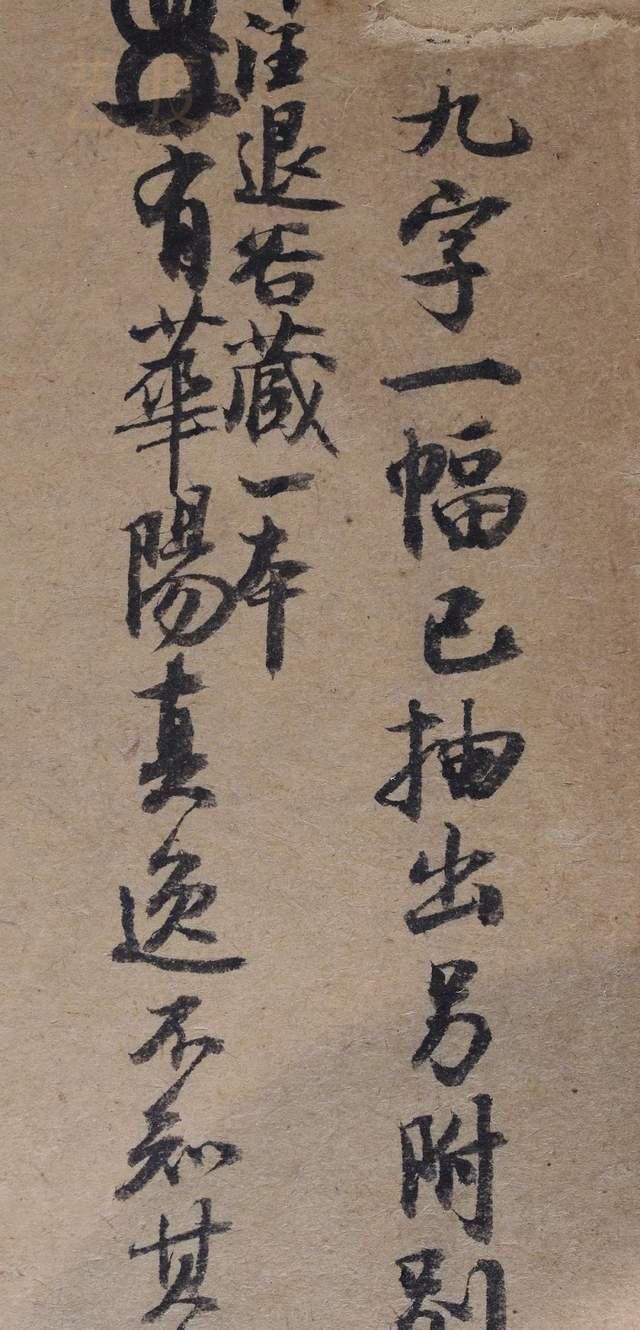 九字一幅已抽出另附别
注退谷藏一本
有華陽真逸不知其